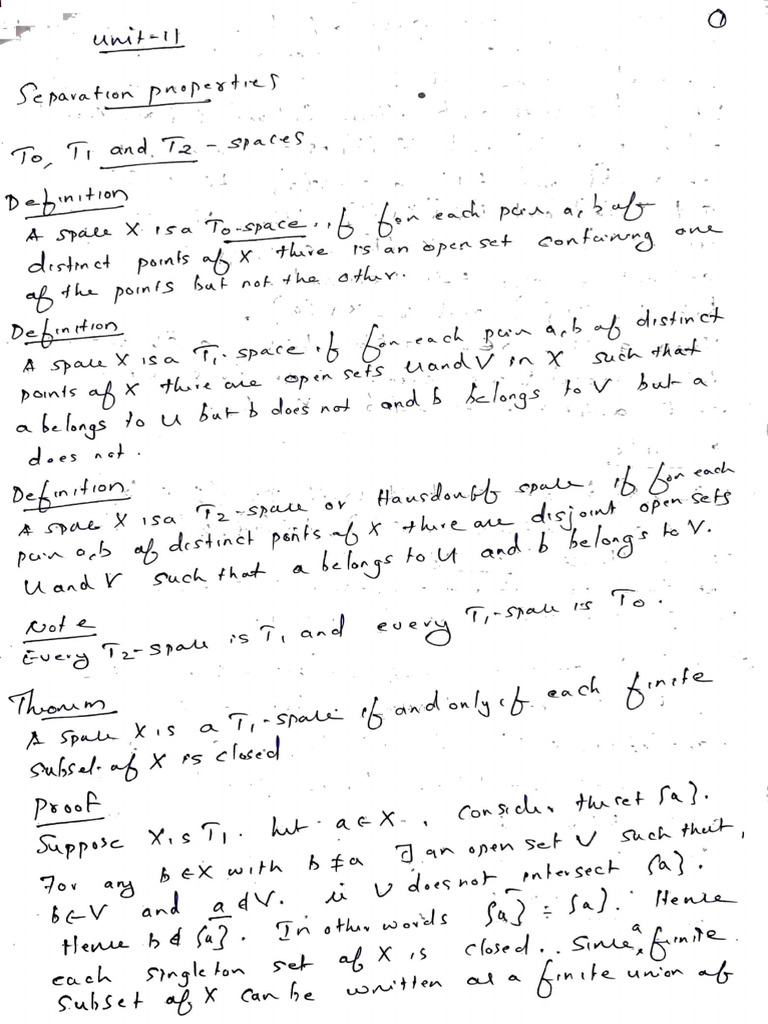 ①
unit-II
Separation properties
T0, T1 and T2 - spaces.
Definition
A space X is a T0-space if for each pair a, b of
distinct points of X there is an open set containing one
of the points but not the other.
Definition
A space X is a T1-space if for each pair a, b of distinct
points of X there are open sets U and V in X such that
a belongs to U but b does not and b belongs to V but a
does not.
Definition
A space X is a T2-space or Hausdorff space if for each
pair a, b of distinct points of X there are disjoint open sets
U and V such that a belongs to U and b belongs to V.
Note
Every T2-space is T1 and every T1-space is T0.
Theorem
A space X is a T1-space if and only if each finite
subset of X is closed
Proof
Suppose X is T1. Let a ∈ X. Consider the set {a}.
For any b ∈ X with b ≠ a ∃ an open set V such that,
b ∈ V and a ∉ V. ie V does not intersect {a}.
Hence b ∉ {a}. In other words {a}̅ = {a}. Hence
each singleton set of X is closed. Since a finite
subset of X can be written as a finite union of